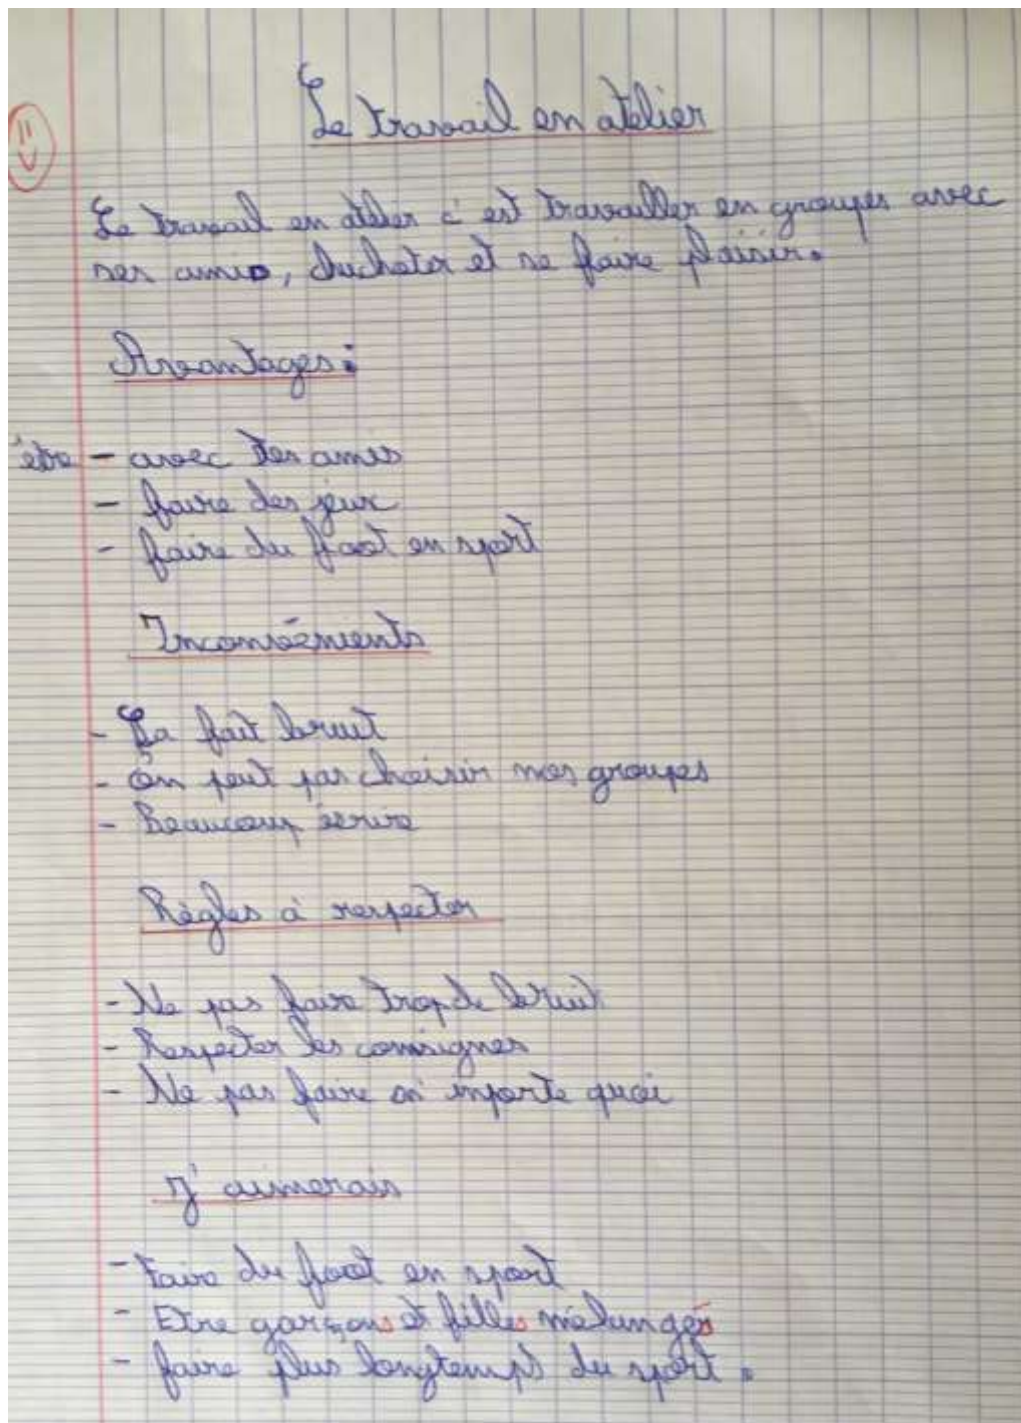 Le travail en atelier
Le travail en atelier c'est travailler en groupes avec
ses amis, chuchoter et se faire plaisir.
Avantages :
être - avec des amis
- faire des jeux
- faire du foot en sport
Inconvénients
- Ça fait bruit
- On peut pas choisir nos groupes
- Beaucoup écrire
Règles à respecter
- Ne pas faire trop de bruit
- Respecter les consignes
- Ne pas faire n'importe quoi
J'aimerais
- Faire du foot en sport
- Etre garçons et filles mélangés
- faire plus longtemps du sport.